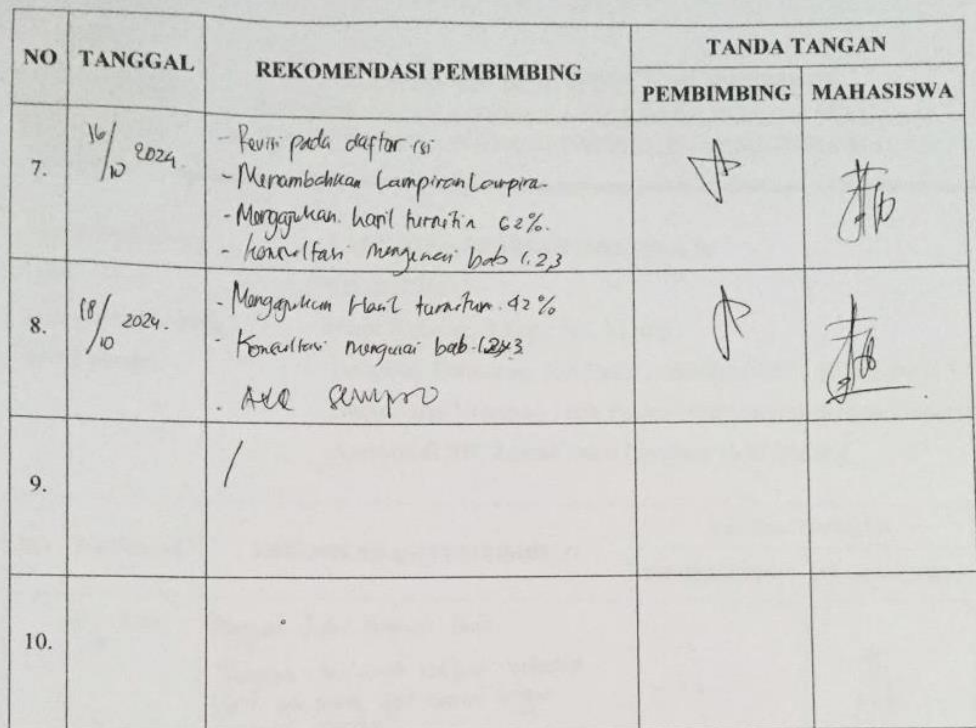 NO TANGGAL REKOMENDASI PEMBIMBING TANDA TANGAN
PEMBIMBING MAHASISWA
7. 16/10 2024.
- Revisi pada daftar isi
- Menambahkan Lampiran Lampira
- Mengajukan hasil turnitin 62%.
- konsultasi mengenai bab 1,2,3
8. 18/10 2024.
- Mengajukan Hasil turnitin 42%
- Konsultasi mengenai bab 1,2,3
. Acc sempro
9. /
10.